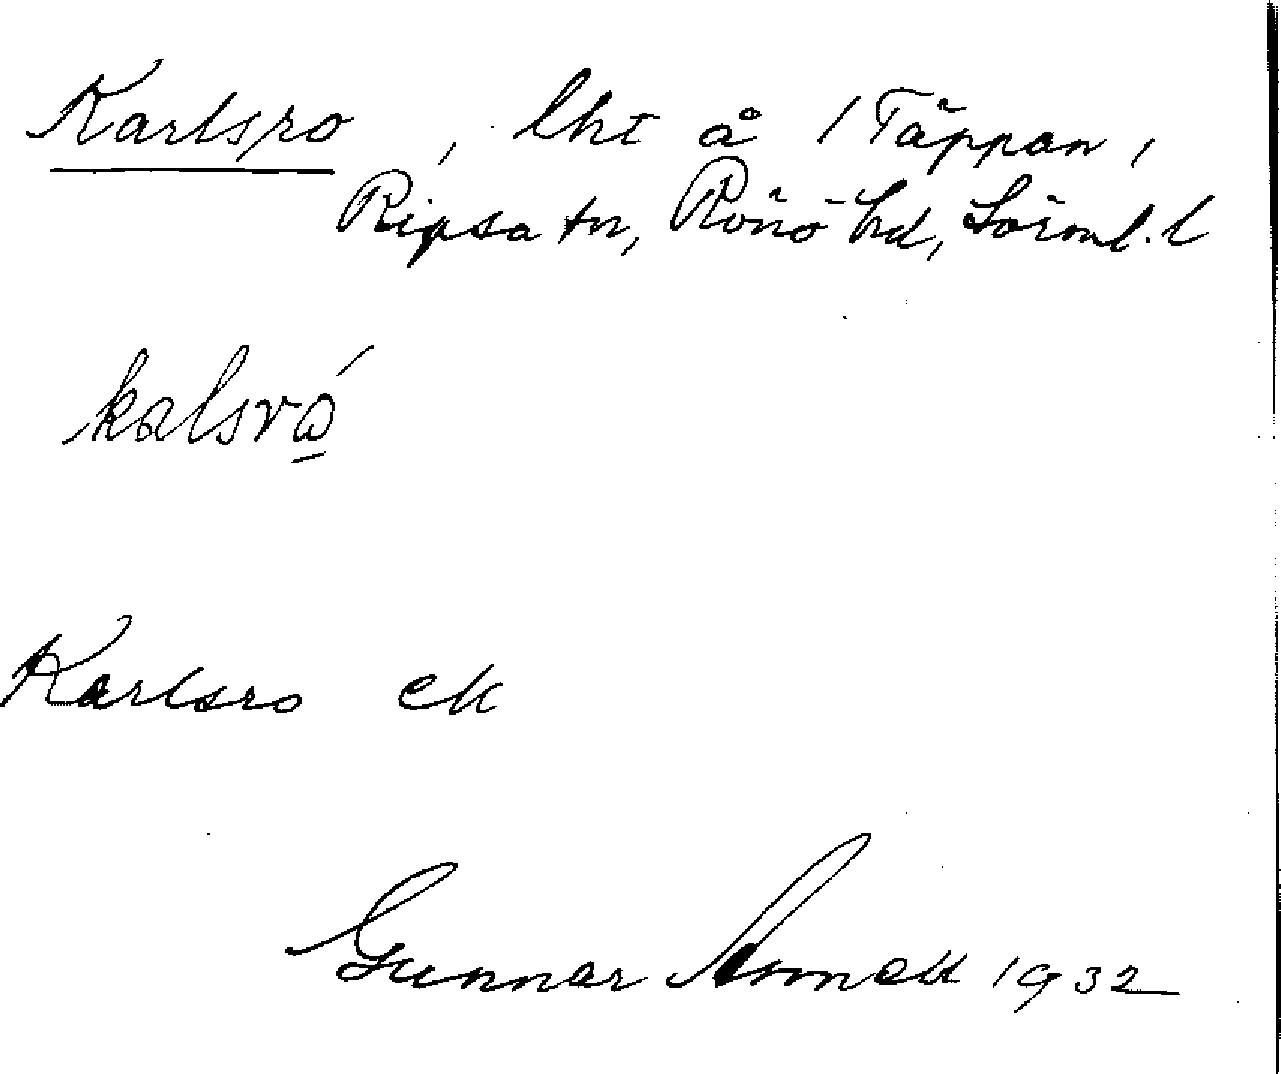 Karlsro, lht å 1 Täppan,
Ripsa sn, Rönö hd, Sörml. l
Karlsro ek
Gunnar 1932